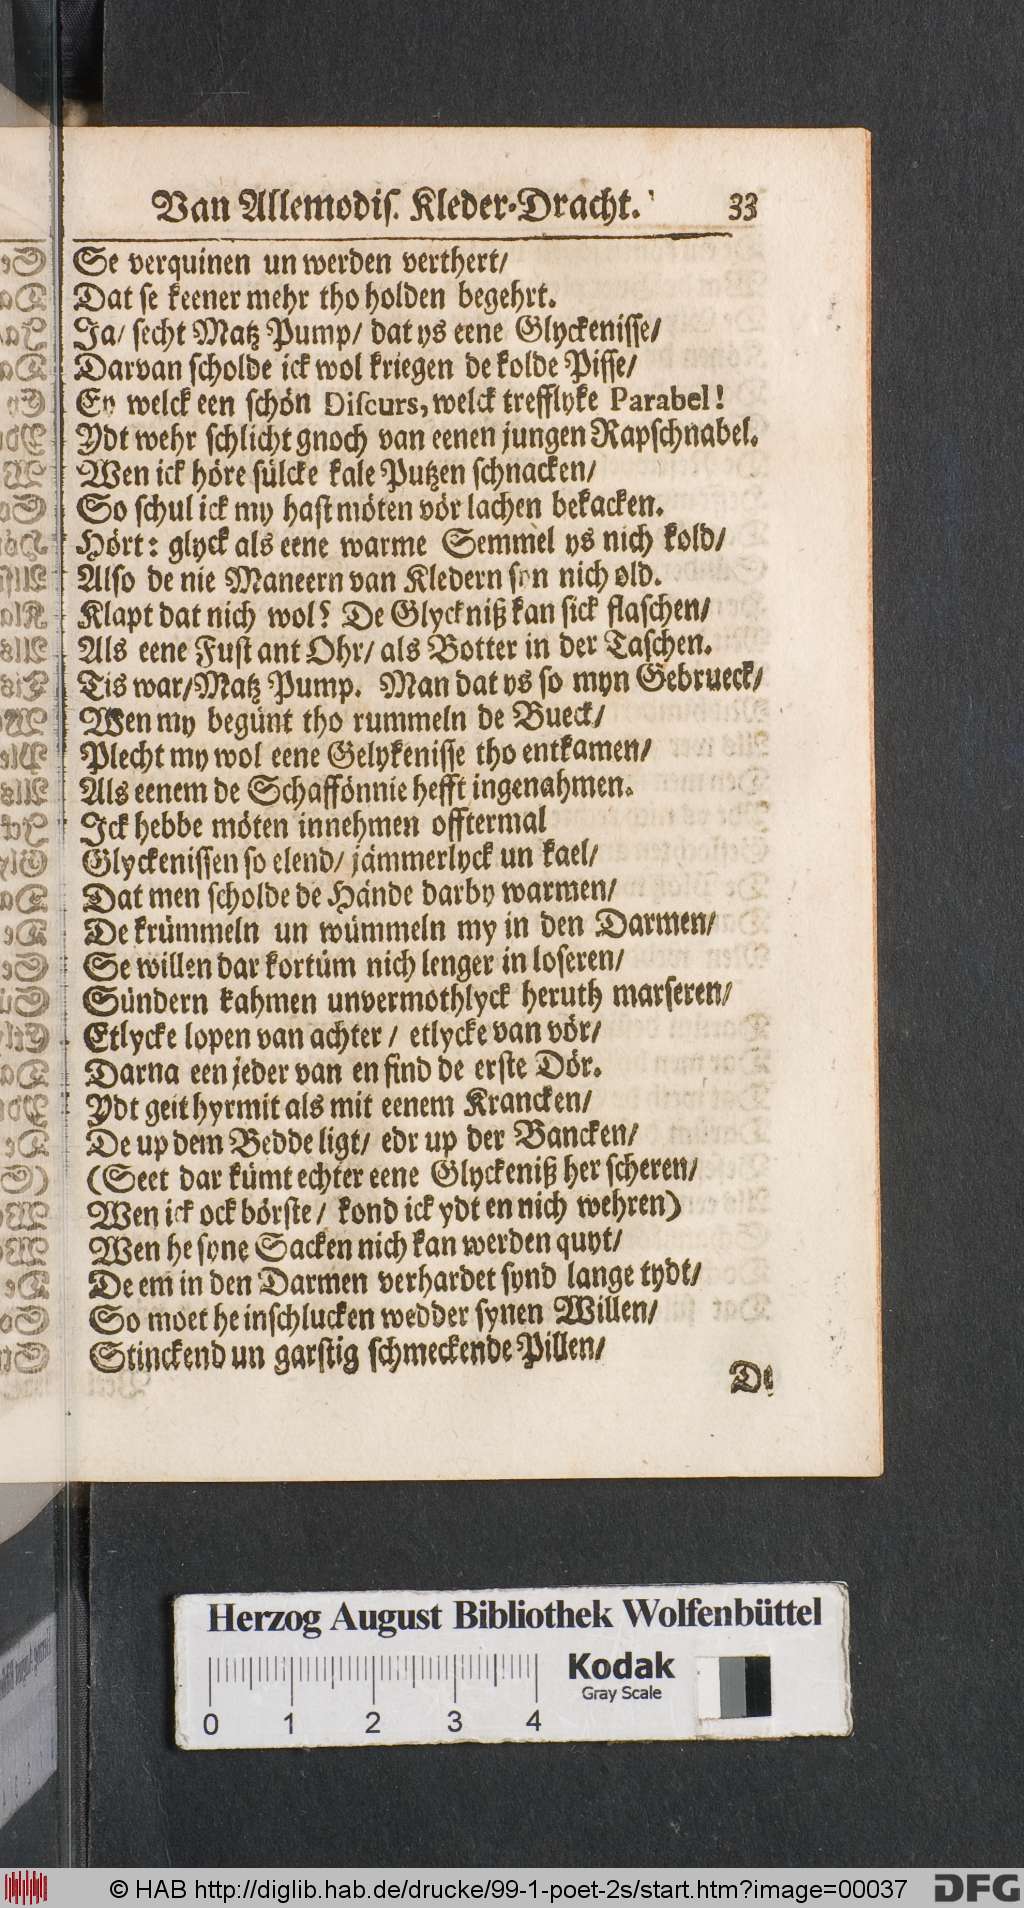 Van Allemodis. Kleder-Dracht. 33
Se verquinen un werden verthert/
Dat se keener mehr tho holden begehrt.
Ja/ secht Matz Pump/ dat ys eene Glyckenisse/
Darvan scholde ick wol kriegen de kolde Pisse/
Ey welck een schön Discurs, welck trefflyke Parabel!
Ydt wehr schlicht gnoch van eenen jungen Rapschnabel.
Wen ick höre sülcke kale Putzen schnacken/
So schul ick my hast möten vör lachen bekacken.
Hört: glyck als eene warme Semmel ys nich kold/
Also de nie Maneern van Kledern syn nich old.
Klapt dat nich wol? De Glyckniß kan sick flaschen/
Als eene Fust ant Ohr/ als Botter in der Taschen.
Tis war/ Matz Pump. Man dat ys so myn Gebrueck/
Wen my begünt tho rummeln de Bueck/
Plecht my wol eene Gelykenisse tho entkamen/
Als eenem de Schaffönnie hefft ingenahmen.
Ick hebbe möten innehmen offtermal
Glyckenissen so elend/ jämmerlyck un kael/
Dat men scholde de Hände darby warmen/
De krümmeln un wümmeln my in den Darmen/
Se willen dar kortüm nich lenger in loseren/
Sündern kahmen unvermothlyck heruth marseren/
Etlycke lopen van achter/ etlycke van vör/
Darna een jeder van en find de erste Dör.
Ydt geit hyrmit als mit eenem Krancken/
De up dem Bedde ligt/ edr up der Bancken/
(Seet dar kümt echter eene Glyckeniß her scheren/
Wen ick ock börste/ kond ick ydt en nich wehren)
Wen he syne Sacken nich kan werden quyt/
De em in den Darmen verhardet synd lange tydt/
So moet he inschlucken wedder synen Willen/
Stinckend un garstig schmeckende Pillen/
De
Herzog August Bibliothek Wolfenbüttel
Kodak
Gray Scale
0 1 2 3 4
© HAB http://diglib.hab.de/drucke/99-1-poet-2s/start.htm?image=00037
DFG